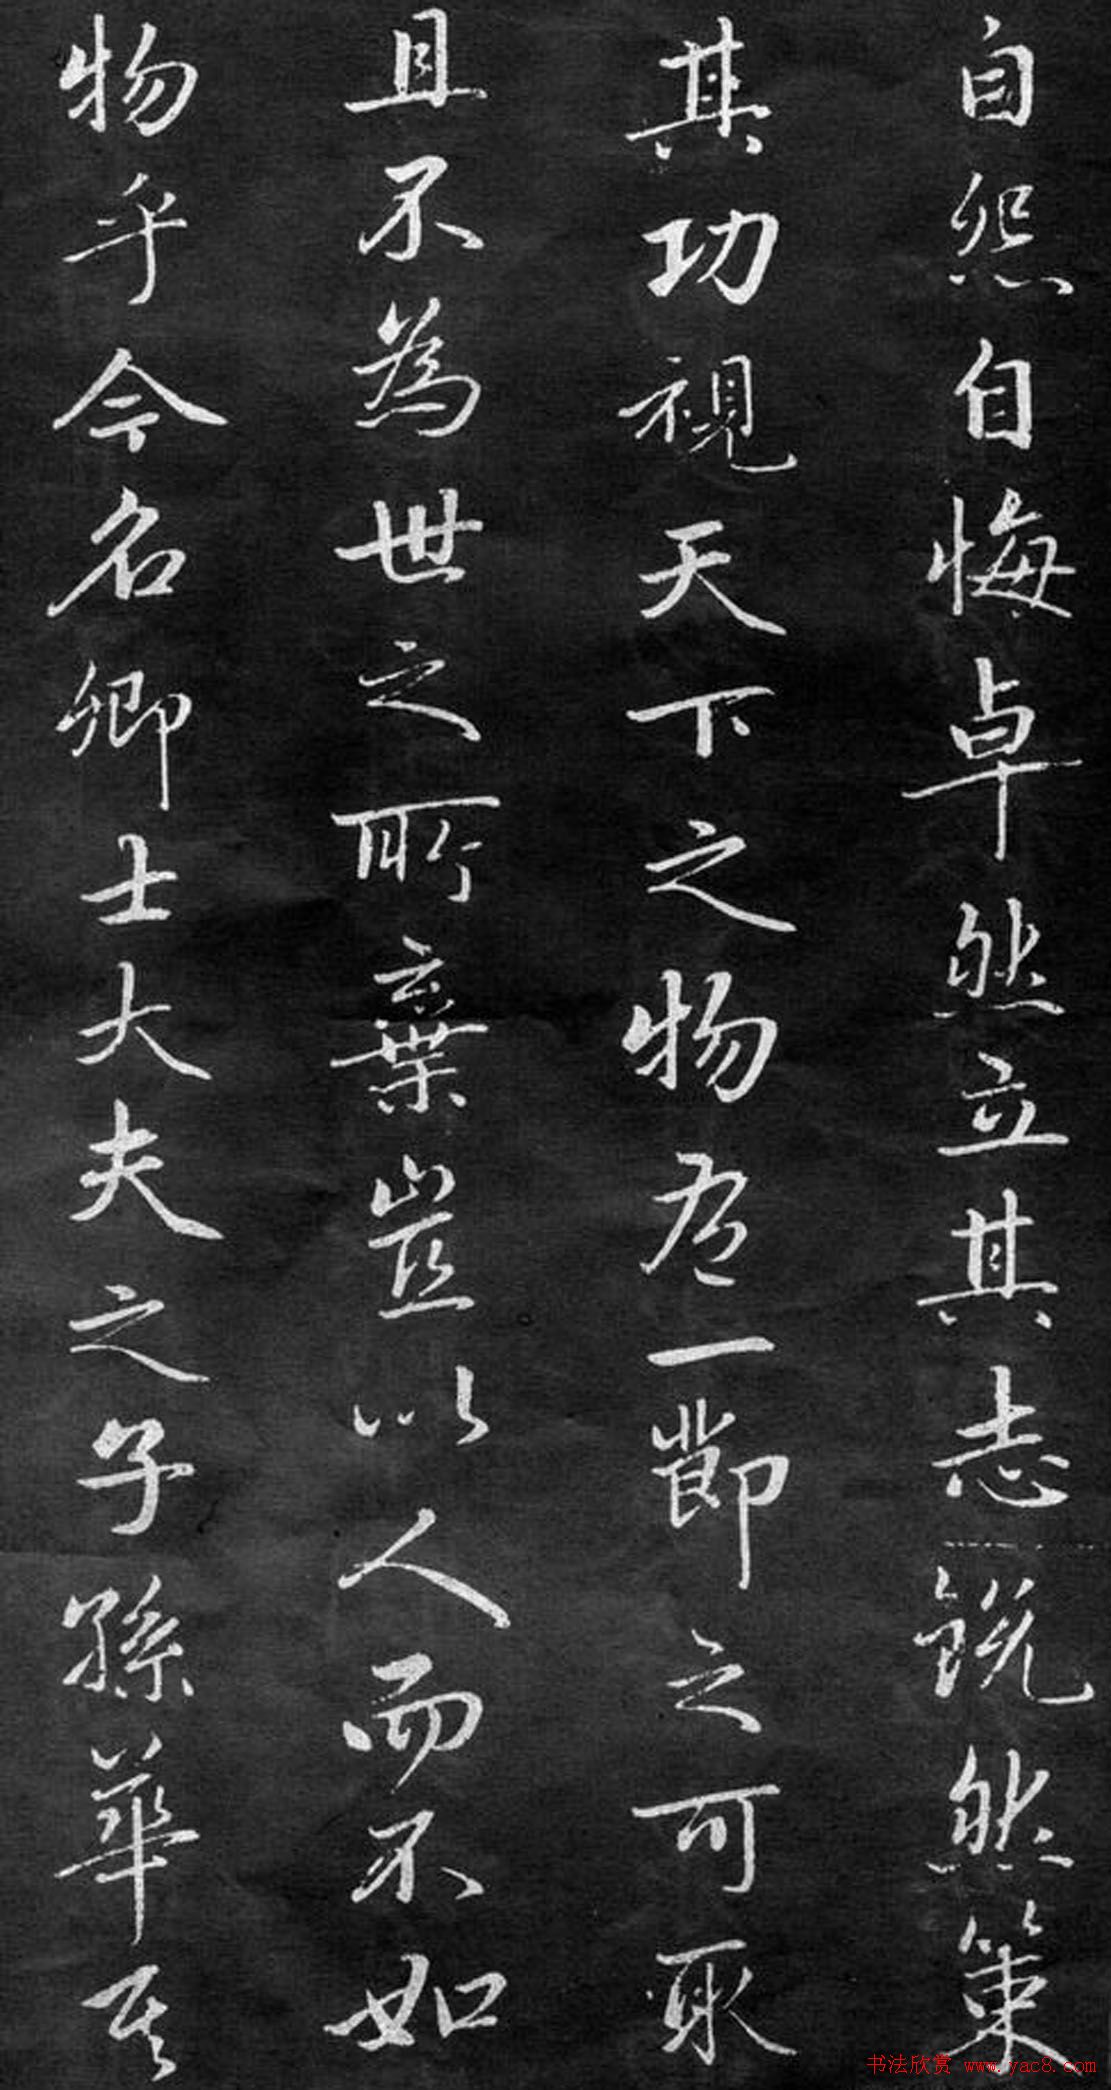 自怨自悔卓然立其志銳然策
其功視天下之物有一節之可取
且不為世之所棄豈以人而不如
物乎今名卿士大夫之子孫華其
书法欣赏 www.yac8.com